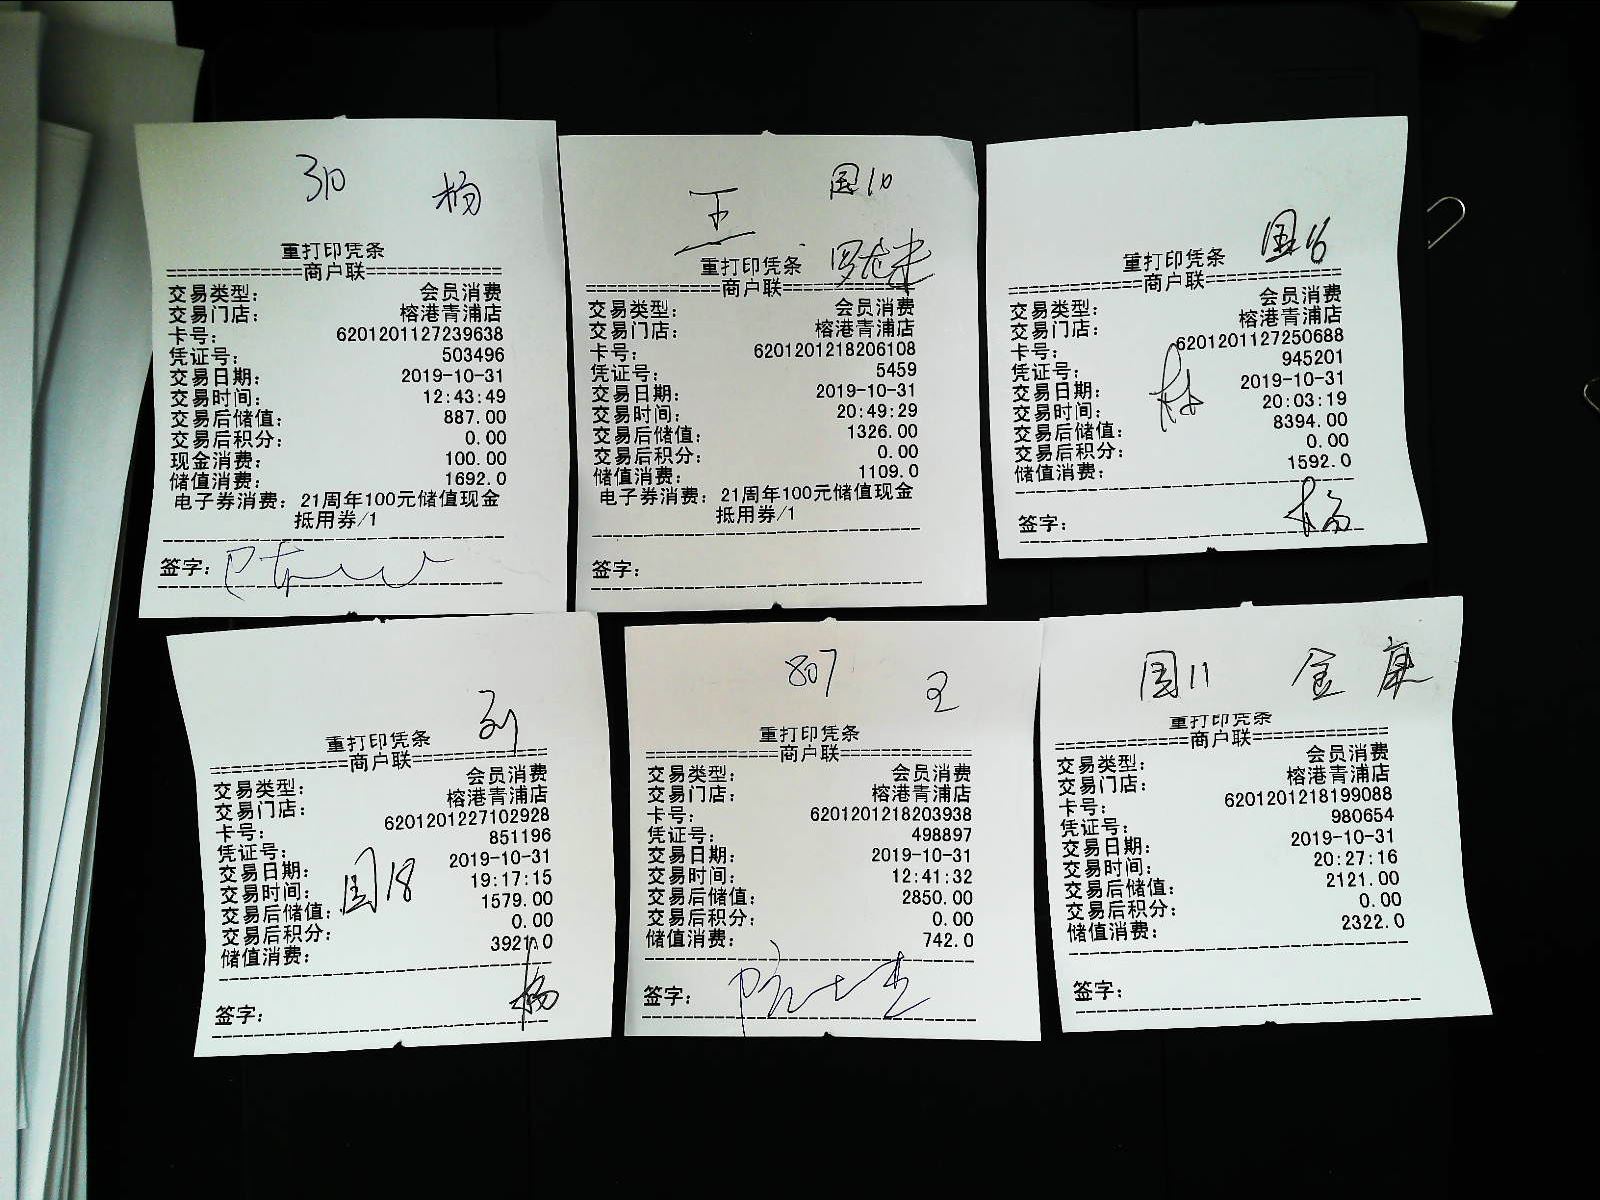 310 杨
重打印凭条
=============商户联=============
交易类型: 会员消费
交易门店: 榕港青浦店
卡号: 6201201127239638
凭证号: 503496
交易日期: 2019-10-31
交易时间: 12:43:49
交易后储值: 887.00
交易后积分: 0.00
现金消费: 100.00
储值消费: 1692.0
电子券消费: 21周年100元储值现金
抵用券/1
签字:
王 国10
重打印凭条
=============商户联=============
交易类型: 会员消费
交易门店: 榕港青浦店
卡号: 6201201218206108
凭证号: 5459
交易日期: 2019-10-31
交易时间: 20:49:29
交易后储值: 1326.00
交易后积分: 0.00
储值消费: 1109.0
电子券消费: 21周年100元储值现金
抵用券/1
签字:
重打印凭条
=============商户联=============
交易类型: 会员消费
交易门店: 榕港青浦店
卡号: 6201201127250688
凭证号: 945201
交易日期: 2019-10-31
交易时间: 20:03:19
交易后储值: 8394.00
交易后积分: 0.00
储值消费: 1592.0
签字: 杨
重打印凭条
=============商户联=============
交易类型: 会员消费
交易门店: 榕港青浦店
卡号: 6201201227102928
凭证号: 851196
交易日期: 2019-10-31
交易时间: 19:17:15
国18
交易后储值: 1579.00
交易后积分: 0.00
储值消费: 3921.0
签字: 杨
807 王
重打印凭条
=============商户联=============
交易类型: 会员消费
交易门店: 榕港青浦店
卡号: 6201201218203938
凭证号: 498897
交易日期: 2019-10-31
交易时间: 12:41:32
交易后储值: 2850.00
交易后积分: 0.00
储值消费: 742.0
签字:
国11 金 康
重打印凭条
=============商户联=============
交易类型: 会员消费
交易门店: 榕港青浦店
卡号: 6201201218199088
凭证号: 980654
交易日期: 2019-10-31
交易时间: 20:27:16
交易后储值: 2121.00
交易后积分: 0.00
储值消费: 2322.0
签字: